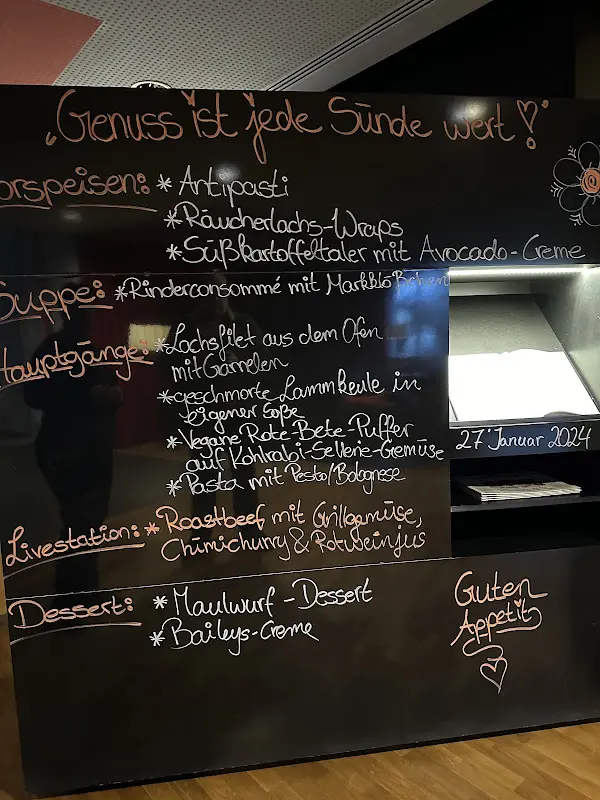 „Genuss ist jede Sünde wert!“
orspeisen: * Antipasti
* Räucherlachs-Wraps
* Süßkartoffeltaler mit Avocado-Creme
Suppe: * Rinderconsommé mit Markklößchen
Hauptgänge: * Lachsfilet aus dem Ofen
mit Garnelen
* geschmorte Lammkeule in
eigener Soße
* Vegane Rote-Bete-Puffer
auf Kohlrabi-Sellerie-Gemüse
* Pasta mit Pesto/Bolognese
27. Januar 2024
Livestation: * Roastbeef mit Grillgemüse,
Chimichurry & Rotweinjus
Dessert: * Maulwurf-Dessert
* Baileys-Creme
Guten
Appetit